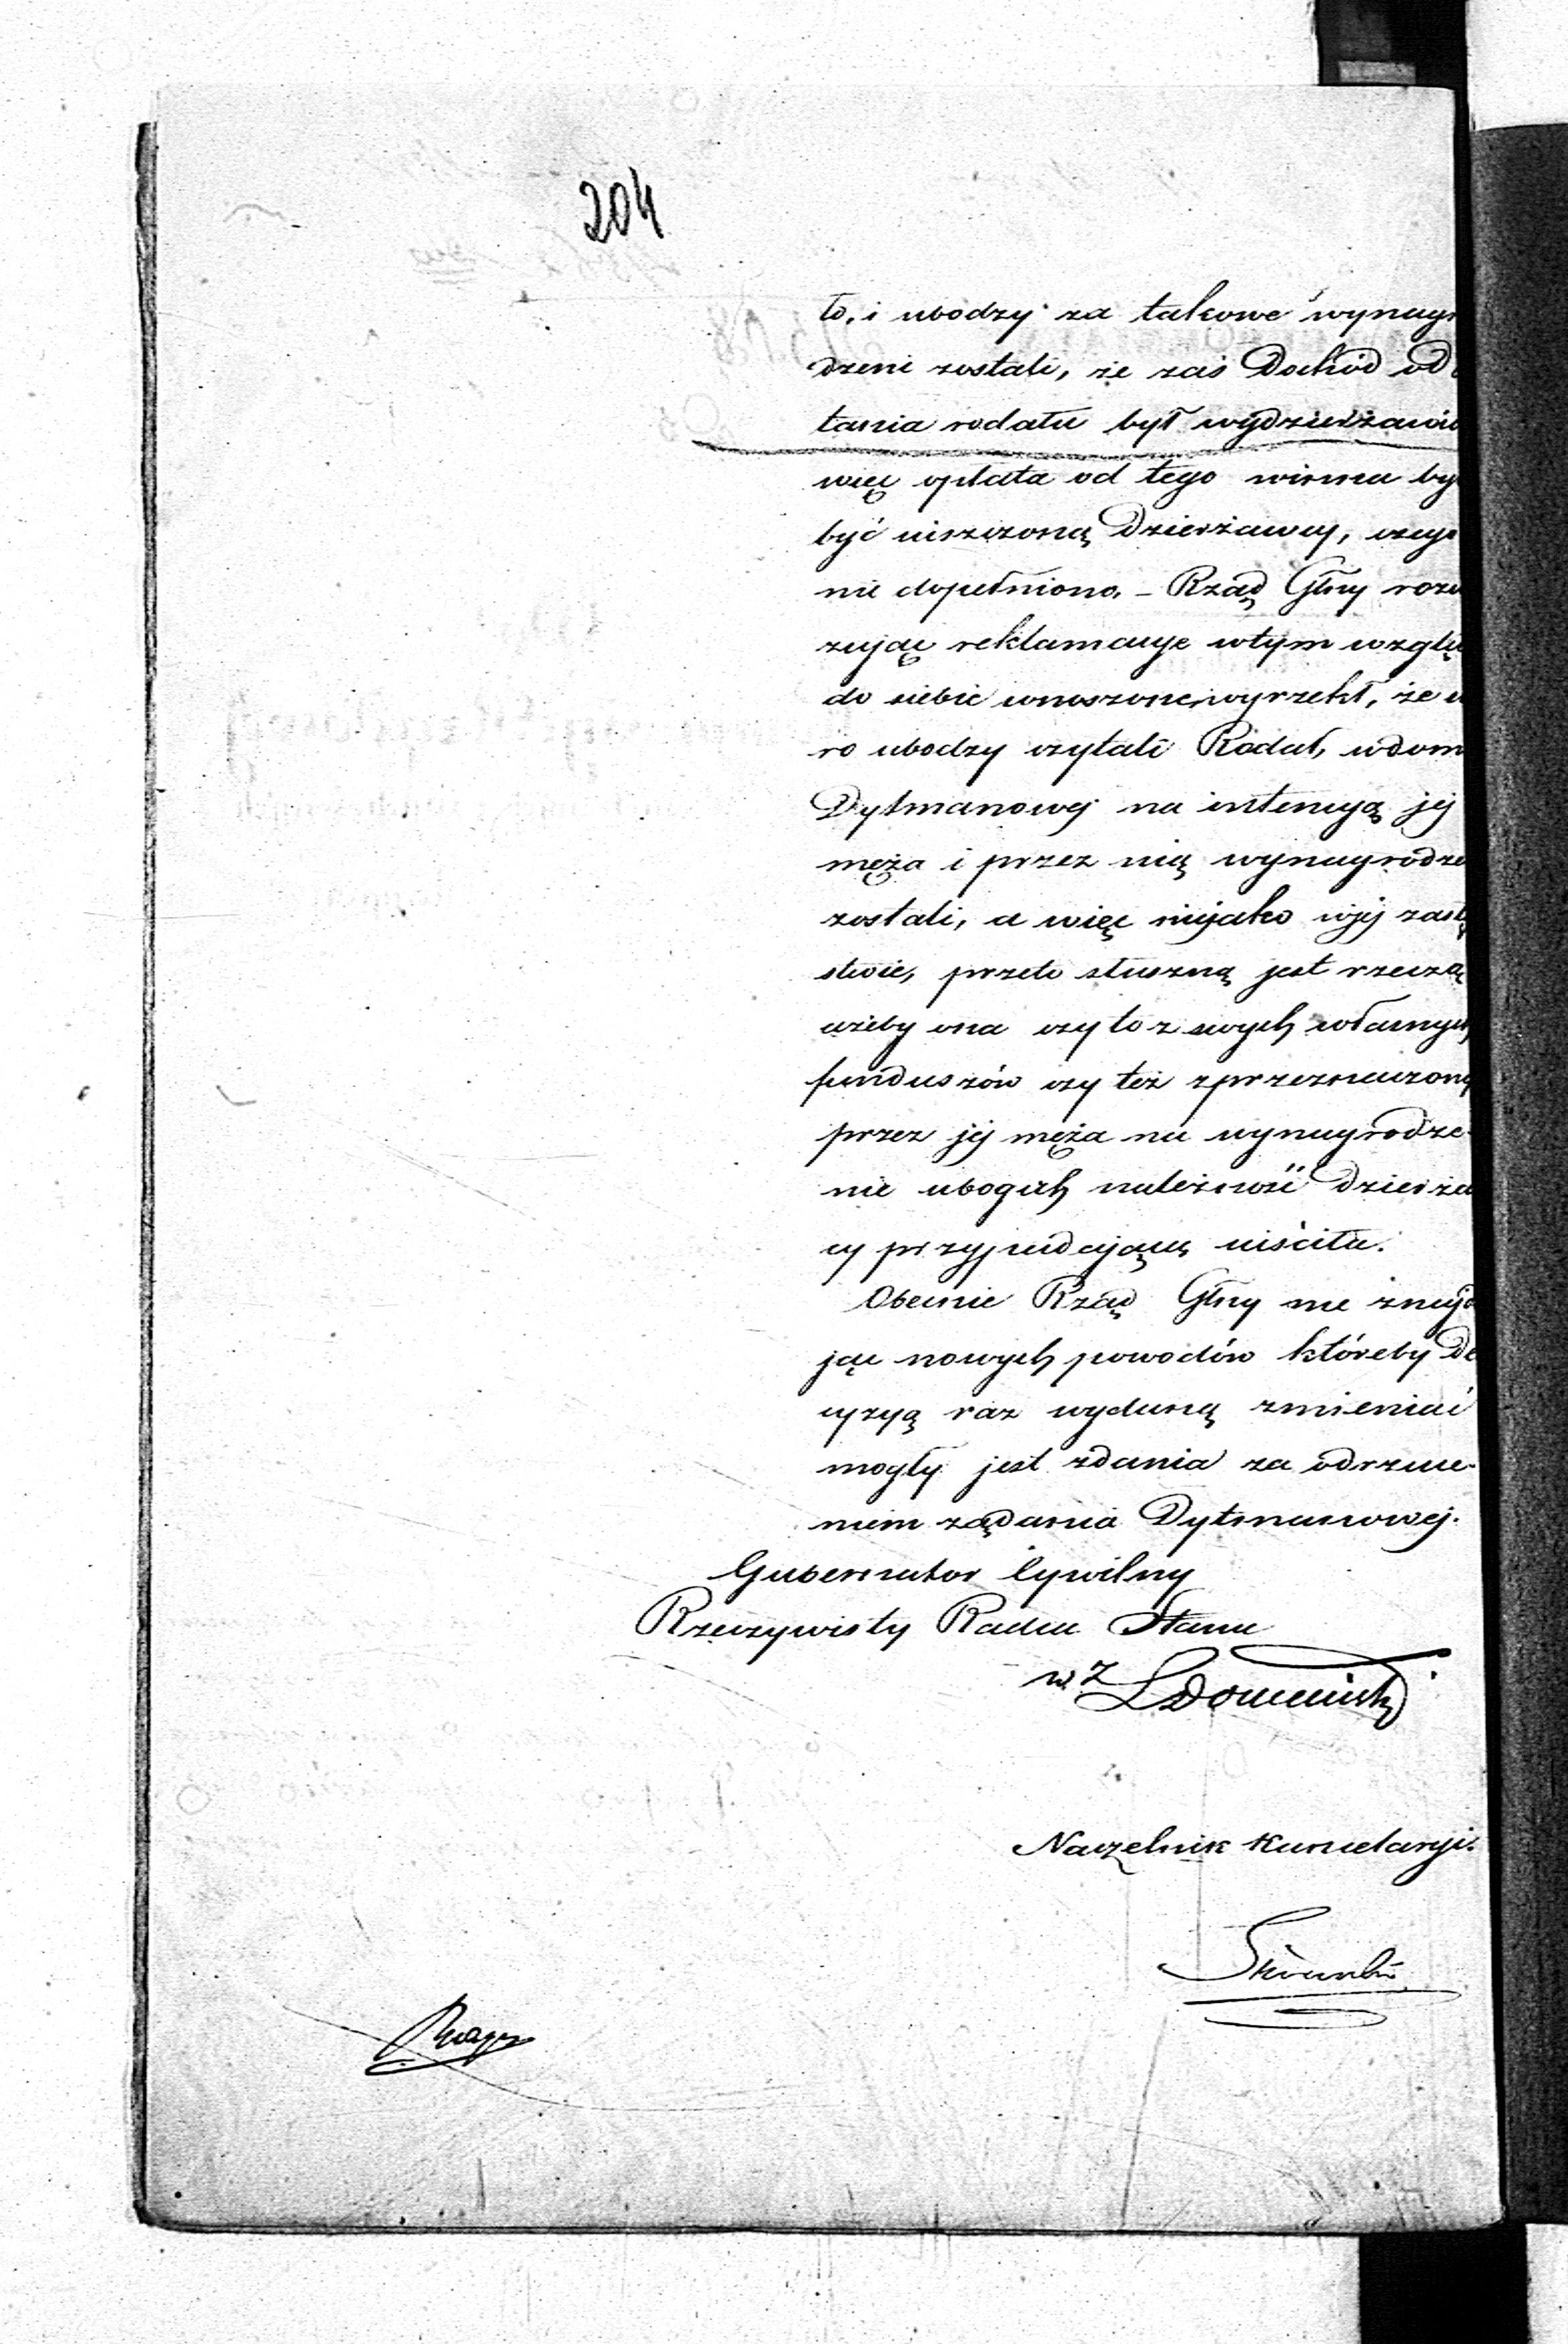 204
to, i ubodzy za takowe wynagr
dzeni zostali, że zaś Dochód od
tania rodału był wydzierżawio
więc opłata od tego winna by
być uiszczoną Dzierżawcy, czego
nie dopełniono. – Rząd Głny roz
zując reklamacye wtym wzglę
do siebie wnoszone, wyrzekł, że
ro ubodzy czytali Rodał, wdom
Dytmanowej na intencyą jej
męża i przez nią wynagrodze
zostali, a więc niejako wjej zastę
stwie, przeto słuszną jest rzeczą
ażeby ona czyto z swych własnych
funduszów czy też zprzeznaczonej
przez jej męża na wynagrodze-
nie ubogich należność dzierża
cy przypadającą uiściła.
Obecnie Rząd Głny nie znajd
jąc nowych powodów któreby De
cyzyą raz wydaną zmieniać
mogły jest zdania za odrzuce-
niem żądania Dytmanowej.
Gubernator Cywilny
Rzeczywisty Radca Stanu
w. z
Naczelnik Kancelaryi.